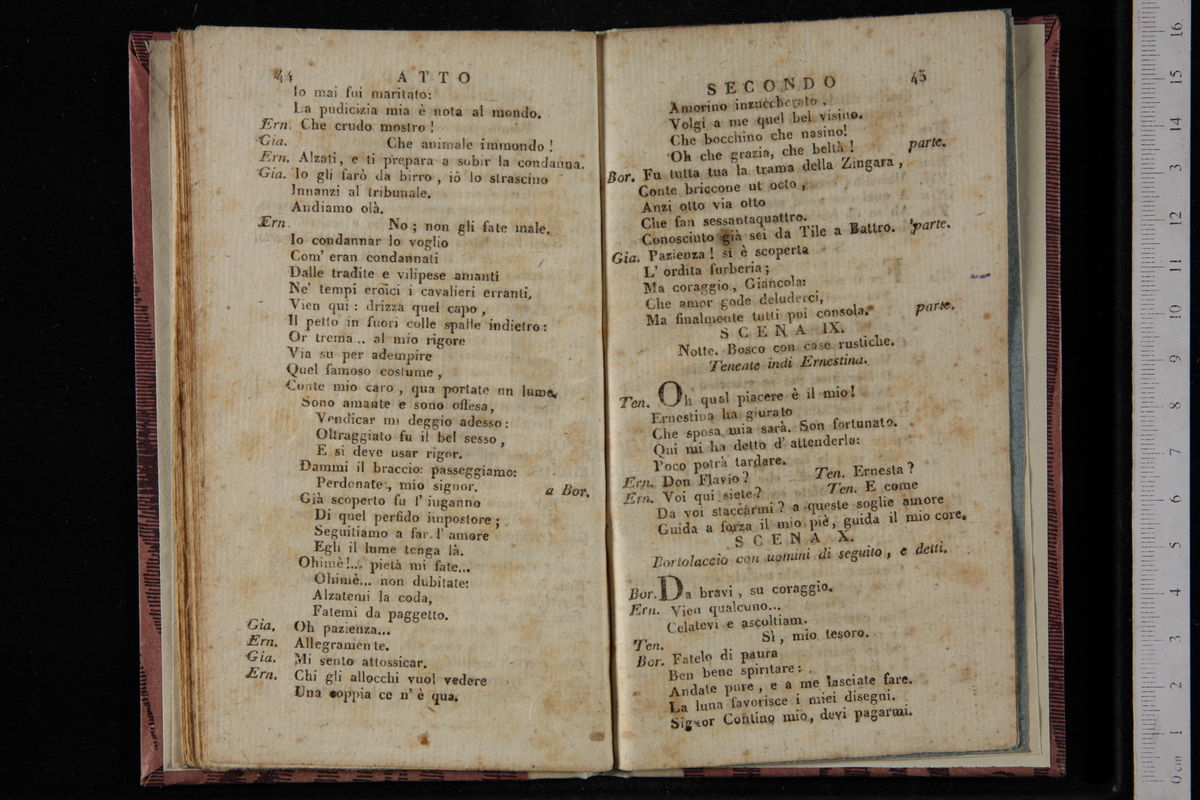 44 ATTO
Io mai fui maritato:
La pudicizia mia è nota al mondo.
Ern. Che crudo mostro!
Gia. Che animale immondo!
Ern. Alzati, e ti prepara a subir la condanna.
Gia. Io gli farò da birro, iò lo strascino
Innanzi al tribunale.
Andiamo olà.
Ern. No; non gli fate male.
Io condannar lo voglio
Com' eran condannati
Dalle tradite e vilipese amanti
Ne' tempi eroici i cavalieri erranti,
Vien qui: drizza quel capo,
Il petto in fuori colle spalle indietro:
Or trema... al mio rigore
Via su per adempire
Quel famoso costume,
Conte mio caro, qua portate un lume.
Sono amante e sono offesa,
Vendicar mi deggio adesso:
Oltraggiato fu il bel sesso,
E si deve usar rigor.
Dammi il braccio: passeggiamo:
Perdonate, mio signor. a Bor.
Già scoperto fu l' inganno
Di quel perfido impostore;
Seguitiamo a far l' amore
Egli il lume tenga là.
Ohimè!... pietà mi fate...
Ohimè... non dubitate:
Alzatemi la coda,
Fatemi da paggetto.
Gia. Oh pazienza...
Ern. Allegramente.
Gia. Mi sento attossicar.
Ern. Chi gli allocchi vuol vedere
Una coppia ce n' è qua.
SECONDO 45
Amorino inzuccherato.
Volgi a me quel bel visino.
Che bocchino che nasino!
Oh che grazia, che beltà! parte.
Bor. Fu tutta tua la trama della Zingara,
Conte briccone ut octo,
Anzi otto via otto
Che fan sessantaquattro.
Conosciuto già sei da Tile a Battro. parte.
Gia. Pazienza! si è scoperta
L' ordita furberia;
Ma coraggio, Giancola:
Che amor gode deluderci,
Ma finalmente tutti poi consola. parte.
SCENA IX.
Notte. Bosco con case rustiche.
Tenente indi Ernestina.
Ten. Oh qual piacere è il mio!
Ernestina ha giurato
Che sposa mia sarà. Son fortunato.
Qui mi ha detto d' attenderla:
Poco potrà tardare.
Ern. Don Flavio? Ten. Ernesta?
Ern. Voi qui siete? Ten. E come
Da voi staccarmi? a queste soglie amore
Guida a forza il mio piè, guida il mio core.
SCENA X.
Bortolaccio con uomini di seguito, e detti.
Bor. Da bravi, su coraggio.
Ern. Vien qualcuno...
Celatevi e ascoltiam.
Ten. Sì, mio tesoro.
Bor. Fatelo di paura
Ben bene spiritare:
Andate pure, e a me lasciate fare.
La luna favorisce i miei disegni.
Signor Contino mio, devi pagarmi.
16
15
14
13
12
11
10
9
8
7
6
5
4
3
2
1
0 cm